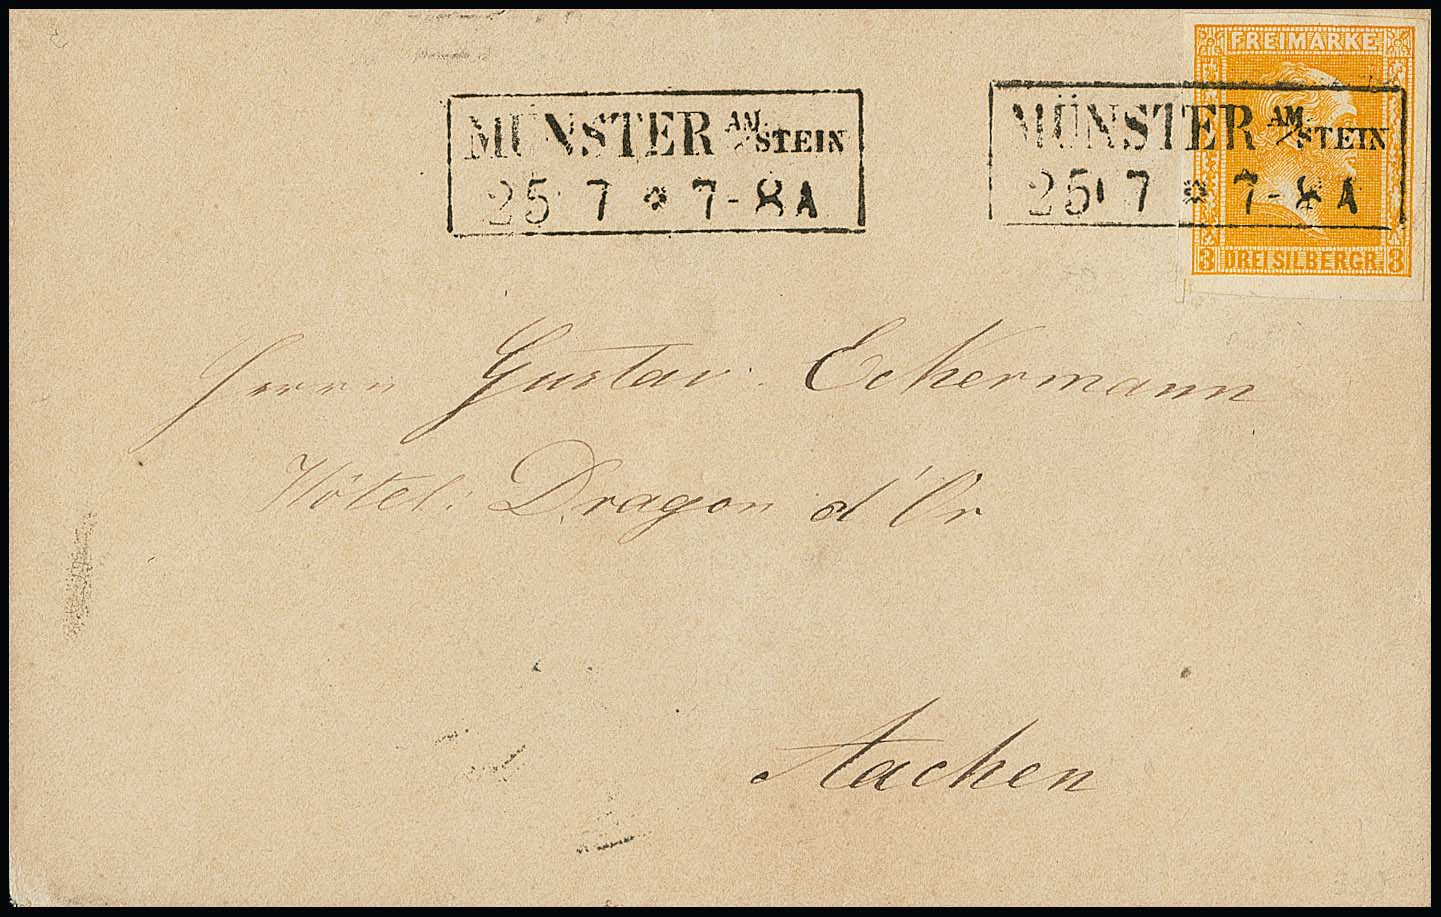 FREIMARKE
MÜNSTER AM/STEIN
25 7 * 7-8A
MÜNSTER AM/STEIN
25 7 * 7-8A
3 DREI SILBERGR. 3
Herrn Gustav Eckermann
Hôtel: Dragon d'Or
Aachen